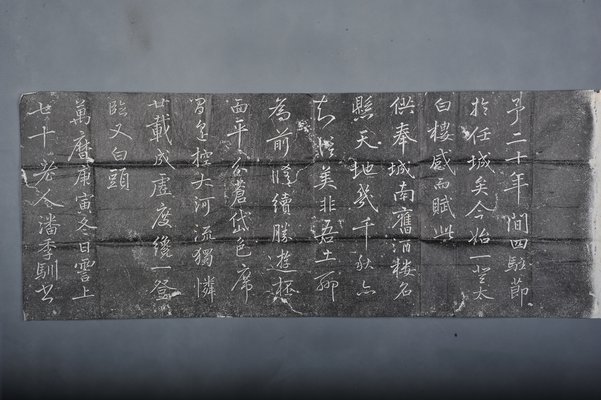 予二十年間四駐節
於任城矣今始一登太
白樓感而賦此
供奉城南舊酒樓名
懸天地幾千秋亦
知信美非吾土聊
為前脩續勝遊
面平分蒼岱色席
控大河流獨憐
廿載成虛度纔一登
臨又白頭
萬曆庚寅冬日霅上
七十老人潘季馴書